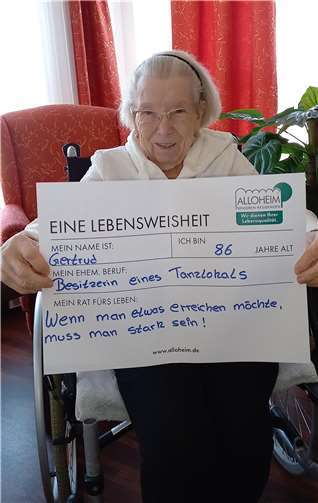 ALLOHEIM
SENIOREN-RESIDENZEN
Wir dienen Ihrer
Lebensqualität.
EINE LEBENSWEISHEIT
MEIN NAME IST: ICH BIN 86 JAHRE ALT
Gertrud
MEIN EHEM. BERUF:
Besitzerin eines Tanzlokals
MEIN RAT FÜRS LEBEN:
Wenn man etwas erreichen möchte,
muss man stark sein!
www.alloheim.de